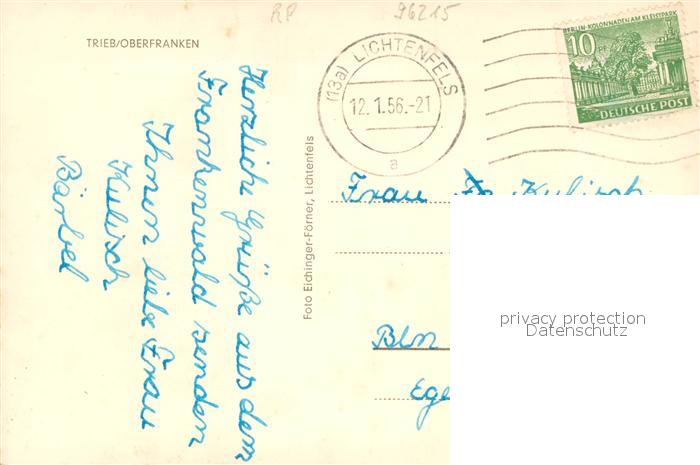 RP 96215
TRIEB/OBERFRANKEN
(13a) LICHTENFELS
12.1.56.-21
a
BERLIN-KOLONNADEN AM KLEISTPARK
10
DEUTSCHE POST
Herzliche Grüße aus dem
Frankenwald senden
Ihnen liebe Frau
Kulisch
Bärbel
Foto Eichinger-Förner, Lichtenfels
Frau Kulisch
Bln
Ege
privacy protection
Datenschutz